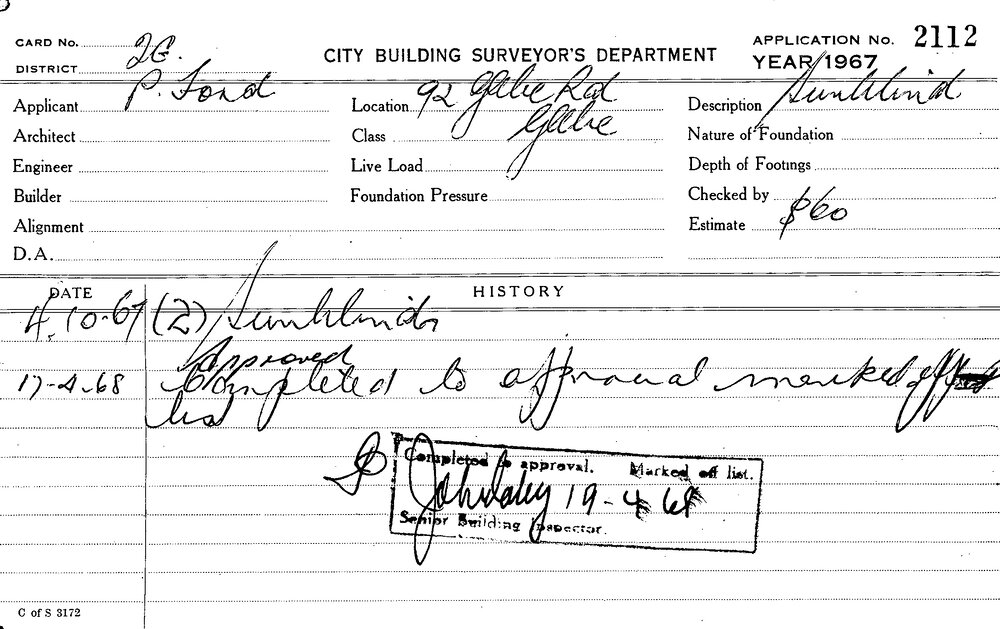 CARD No. 2G.
DISTRICT
CITY BUILDING SURVEYOR'S DEPARTMENT
APPLICATION No. 2112
YEAR 1967
Applicant P. Ford
Location 92 Glebe Rd
Glebe
Description Sunblind
Architect
Class
Nature of Foundation
Engineer
Live Load
Depth of Footings
Builder
Foundation Pressure
Checked by
Estimate $60
Alignment
D.A.
DATE
HISTORY
4.10.67 (2) Sunblinds
Approved
17-4-68 Completed to approval marked off
list
Completed to approval. Marked off list.
19-4 68
Senior Building Inspector.
C of S 3172